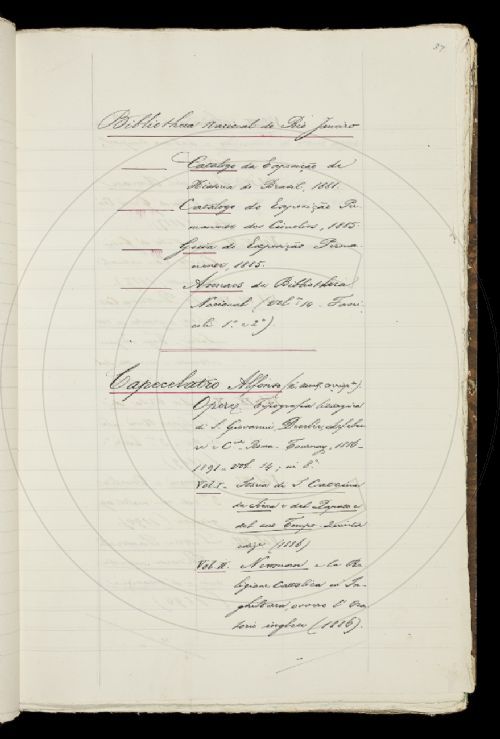 37
Bibliotheca Nacional do Rio Janeiro
Catalogo da Exposição de
Historia do Brasil, 1881.
Catalogo da Exposição Per
manente dos Cimelios, 1885.
Guia da Exposição Perma
nente, 1885.
Annaes da Bibliotheca
Nacional (vol. 10. Fasci
culi 1º e 2º)
Capecelatro Alfonso
Opere, Tipografia Liturgica
di S. Giovanni, Desclée, Lefebv
re e C. Roma. Tournay, 1886-
1891. vol. 14; in 8º
Vol. I. Storia di S. Caterina
da Siena e del Papato
del suo Tempo. Quinta
ediz. (1886)
Vol. II. Newman e la Re
ligione Cattolica in In-
ghilterra, ovvero l'Ora
torio inglese (1886).